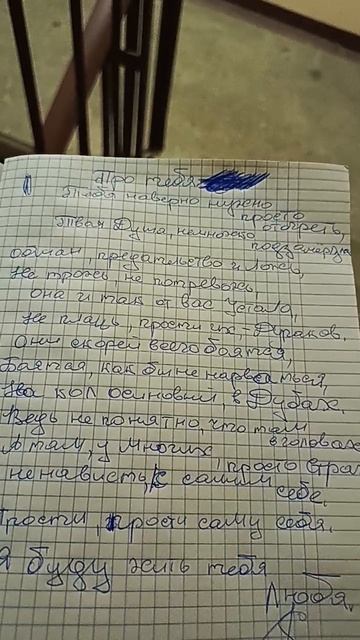 Про тебя
Тебя наверно нужно
просто
отогреть,
Твая Душа, немножко
подзамёрзла
обман, предательство и Ложь,
Не трожь, не потревожь,
она и так от вас устала,
Не плачь, прости их, - Дураков.
Они скорей всего боятся,
Боятся, как бы не нарваться,
На кол осиновый, в Дубах.
Ведь не понятно, что там
в головах
А там, у многих, просто страх
ненависть, к самим
себе.
Прости, прости саму себя.
Я буду жить тебя
Любя.